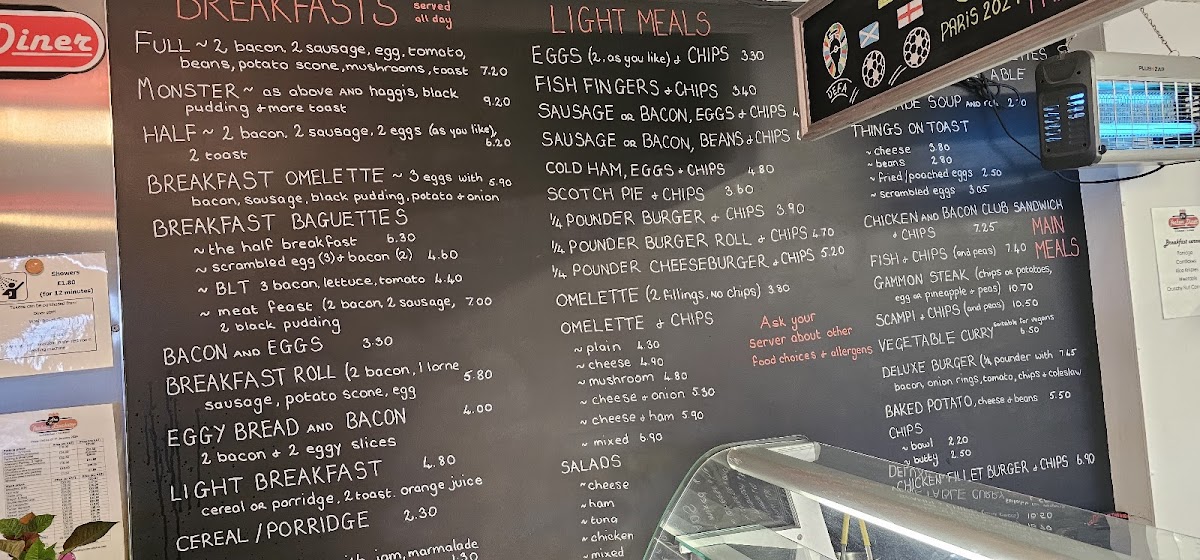 Diner
BREAKFASTS served
all day
FULL ~ 2 bacon, 2 sausage, egg, tomato,
beans, potato scone, mushrooms, toast 7.20
MONSTER ~ as above AND haggis, black
pudding + more toast 9.20
HALF ~ 2 bacon, 2 sausage, 2 eggs (as you like),
2 toast 6.20
BREAKFAST OMELETTE ~ 3 eggs with 5.90
bacon, sausage, black pudding, potato + onion
BREAKFAST BAGUETTES
~ the half breakfast 6.30
~ scrambled egg (3) + bacon (2) 4.60
~ BLT 3 bacon, lettuce, tomato 4.40
~ meat feast (2 bacon, 2 sausage, 7.00
2 black pudding
BACON AND EGGS 3.50
BREAKFAST ROLL (2 bacon, 1 lorne
sausage, potato scone, egg 5.80
EGGY BREAD AND BACON 4.00
2 bacon + 2 eggy slices
LIGHT BREAKFAST 4.80
cereal OR porridge, 2 toast. orange juice
CEREAL / PORRIDGE 2.30
with jam, marmalade
1.30
LIGHT MEALS
EGGS (2, as you like) + CHIPS 3.30
FISH FINGERS + CHIPS 3.40
SAUSAGE OR BACON, EGGS + CHIPS
SAUSAGE OR BACON, BEANS + CHIPS
COLD HAM, EGGS + CHIPS 4.80
SCOTCH PIE + CHIPS 3.60
1/4 POUNDER BURGER + CHIPS 3.90
1/4 POUNDER BURGER ROLL + CHIPS 4.70
1/4 POUNDER CHEESEBURGER + CHIPS 5.20
OMELETTE (2 fillings, NO chips) 3.80
OMELETTE + CHIPS
~ plain 4.30
~ cheese 4.90
~ mushroom 4.80
~ cheese + onion 5.30
~ cheese + ham 5.90
~ mixed 6.90
SALADS
~ cheese
~ ham
~ tuna
~ chicken
~ mixed
Ask your
server about other
food choices + allergens
UEFA
PARIS 2024
ABLE
SOUP AND
THINGS ON TOAST
~ cheese 3.80
~ beans 2.80
~ fried/poached eggs 2.50
~ scrambled eggs 3.05
CHICKEN AND BACON CLUB SANDWICH
+ CHIPS 7.25
MAIN
MEALS
FISH + CHIPS (and peas) 7.40
GAMMON STEAK (chips or potatoes,
egg or pineapple + peas) 10.70
SCAMPI + CHIPS (and peas) 10.50
VEGETABLE CURRY suitable for vegans
6.50
DELUXE BURGER (1/4 pounder with 7.45
bacon, onion rings, tomato, chips + coleslaw
BAKED POTATO, cheese + beans 5.50
CHIPS
~ bowl 2.20
~ butty 2.50
CHICKEN FILLET BURGER + CHIPS 6.90
10.20
Showers
£1.80
(for 12 minutes)